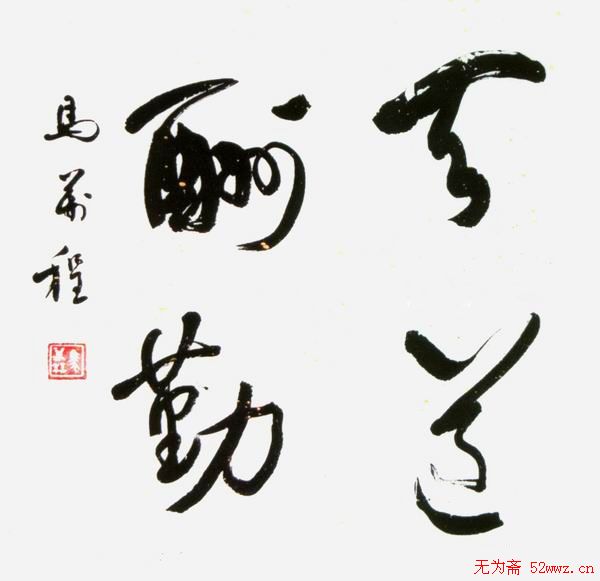 天道
酬勤
馬万程
无为斋 52wwz.cn